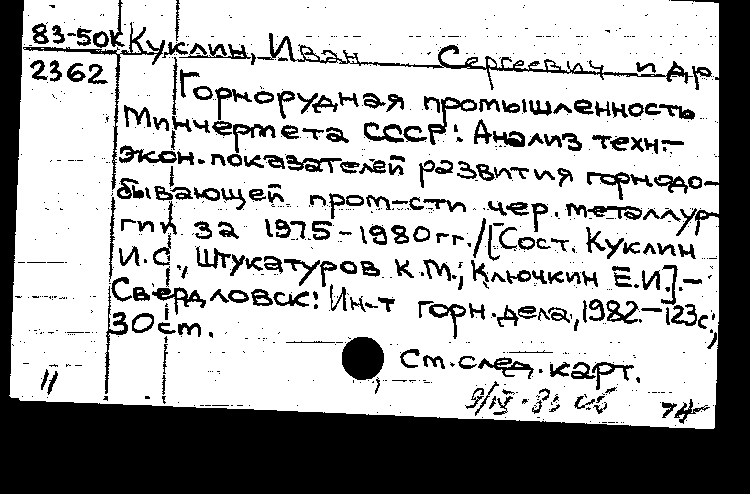 83-50к Куклин, Иван Сергеевич и др.
2362
Горнорудная промышленность
Минчермета СССР: Анализ техн.-
экон. показателей развития горнодо-
бывающей пром-сти чер. металлур-
гии за 1975-1980 гг. / [Сост. Куклин
И.С., Штукатуров К.М., Ключкин Е.И.]. -
Свердловск: Ин-т горн. дела, 1982. - 123 с;
30 см.
См. след. карт.
11